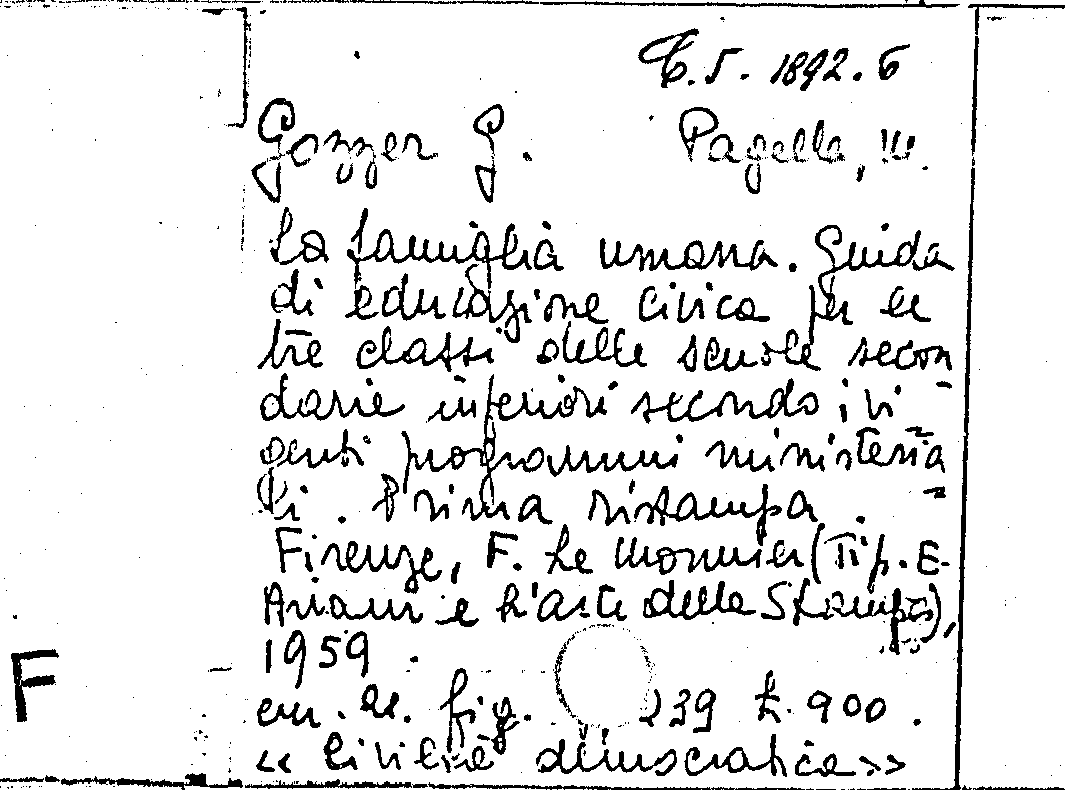 C.5.1892.6
Gozzer G. Pagella, M.
La famiglia umana. Guida
di educazione civica per le
tre classi delle scuole secon
darie inferiori secondo i vi
genti programmi ministeria
li. Prima ristampa.
Firenze, F. Le Monnier (Tip. E.
Ariani e L'arte della Stampa),
1959.
fig. 239 £. 900.
«Civiltà democratica»
F